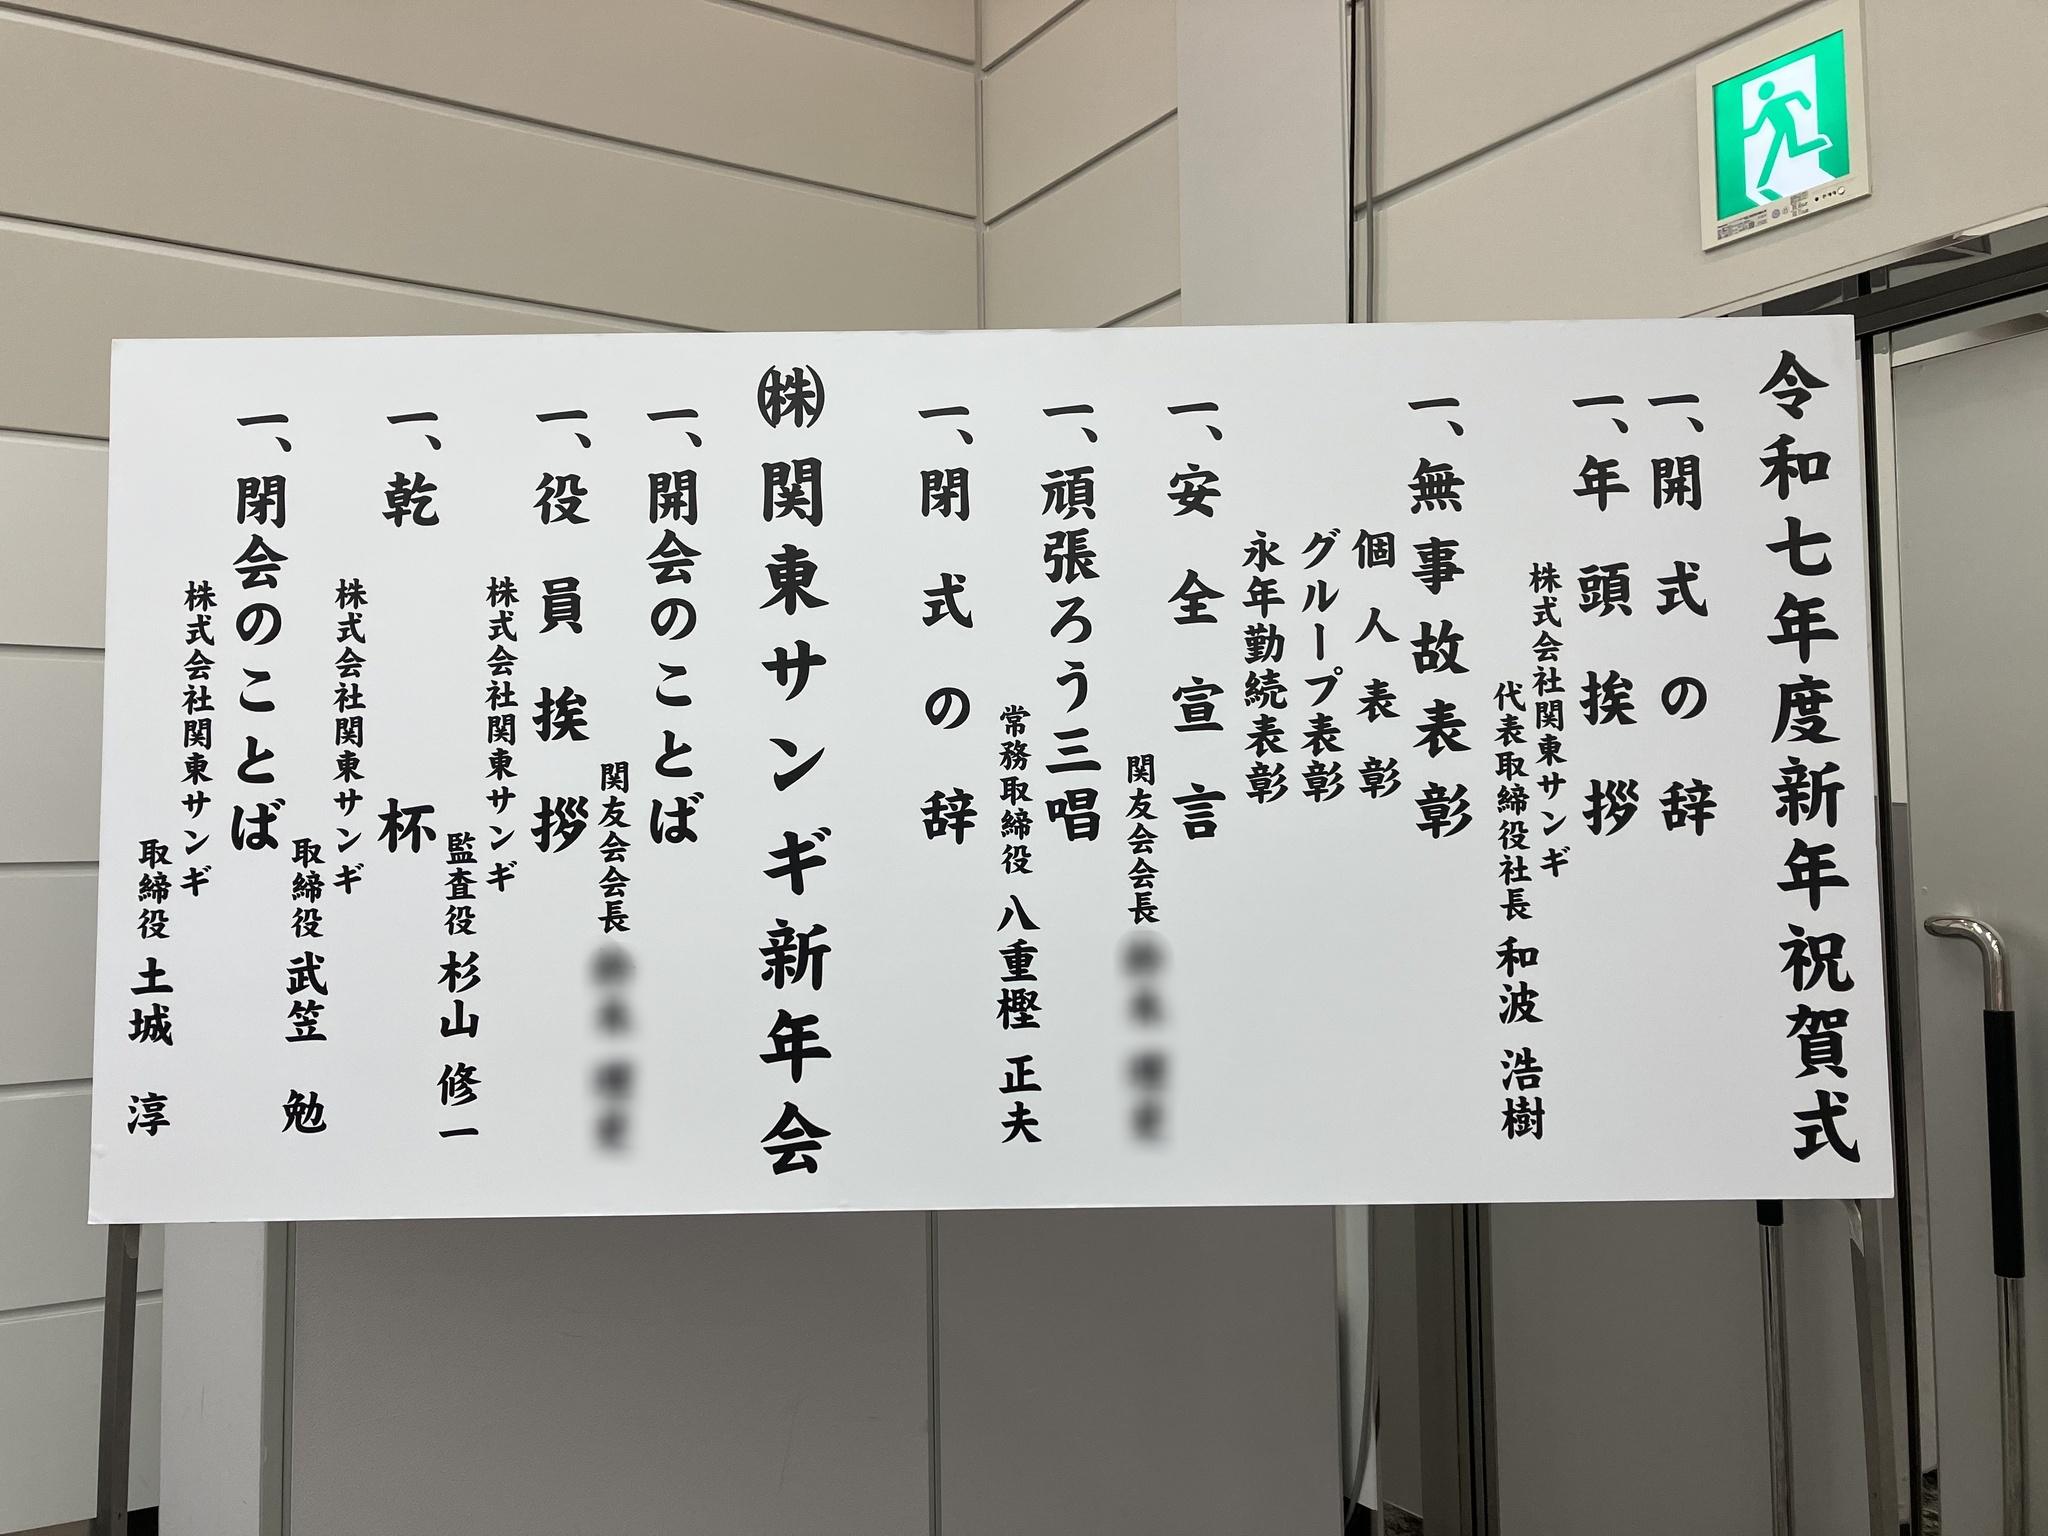 令和七年度新年祝賀式
一、開式の辞
一、年頭挨拶
株式会社関東サンギ
代表取締役社長 和波 浩樹
一、無事故表彰
個人表彰
グループ表彰
永年勤続表彰
一、安全宣言
関友会会長
一、頑張ろう三唱
常務取締役 八重樫 正夫
一、閉式の辞
㈱関東サンギ新年会
一、開会のことば
関友会会長
一、役員挨拶
株式会社関東サンギ
監査役 杉山 修一
一、乾杯
株式会社関東サンギ
取締役 武笠 勉
一、閉会のことば
株式会社関東サンギ
取締役 土城 淳